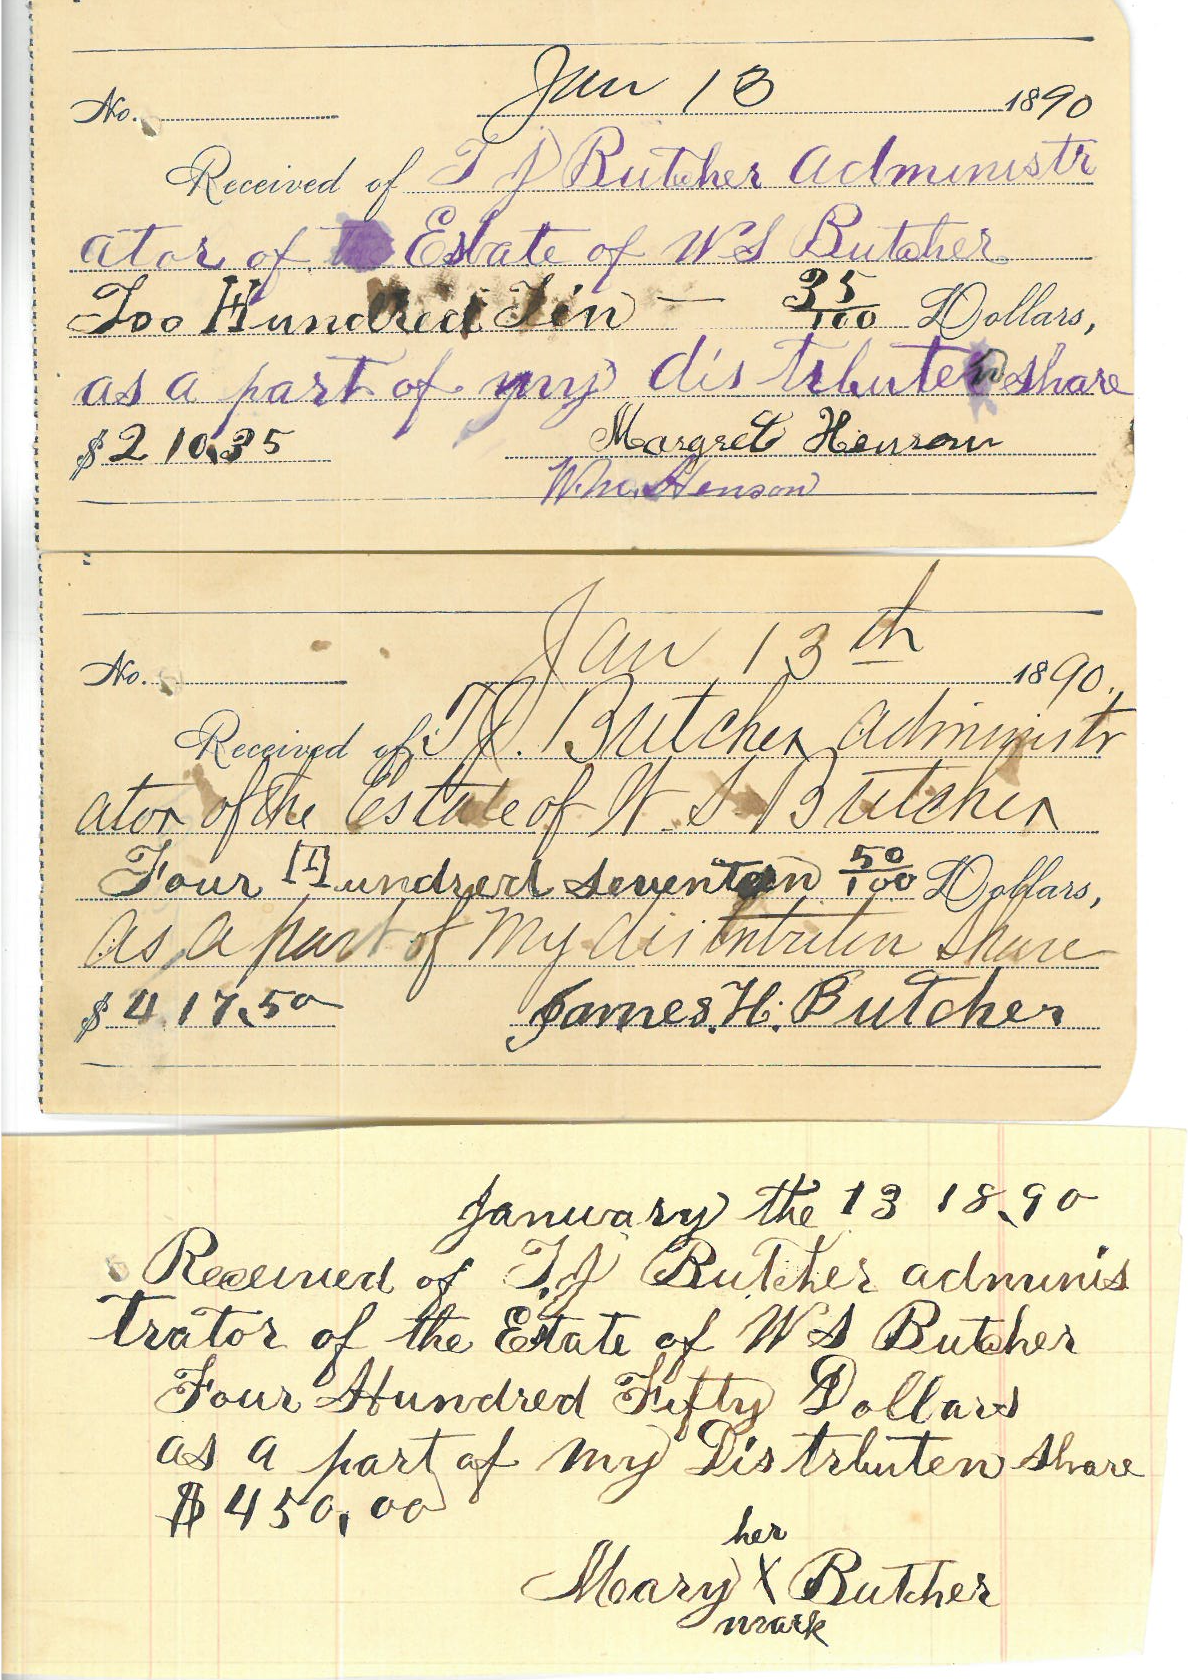 Jan 13 1890
No.
Received of T J Butcher administr
ator of the Estate of W S Butcher
Too Hundred Tin — 35/100 Dollars,
as a part of my distributen share
$210.35 Margret Henson
Wm. Henson
Jan 13th 1890.
No.
Received of T J. Butcher administr
ator of the Estate of W. S. Butcher
Four Hundred seventen 50/100 Dollars,
as a part of my distributen share
$417.50 James. H. Butcher
January the 13 18.90
Received of T. J Butcher adminis
trator of the Estate of W S Butcher
Four Hundred Fifty Dollars
as a part of my Distributen share
$450.00
her
Mary X Butcher
mark